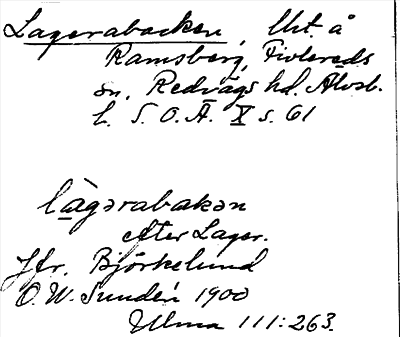 Lagerabacken, lht. å
Ramsberg, Fivlereds
sn, Redvägs hd. Älvsb.
L. S.O.Ä. X s. 61
làgərabakən
efter Lager.
Jfr. Björkelund
O.W. Sundén 1900
Ulma 111:263.